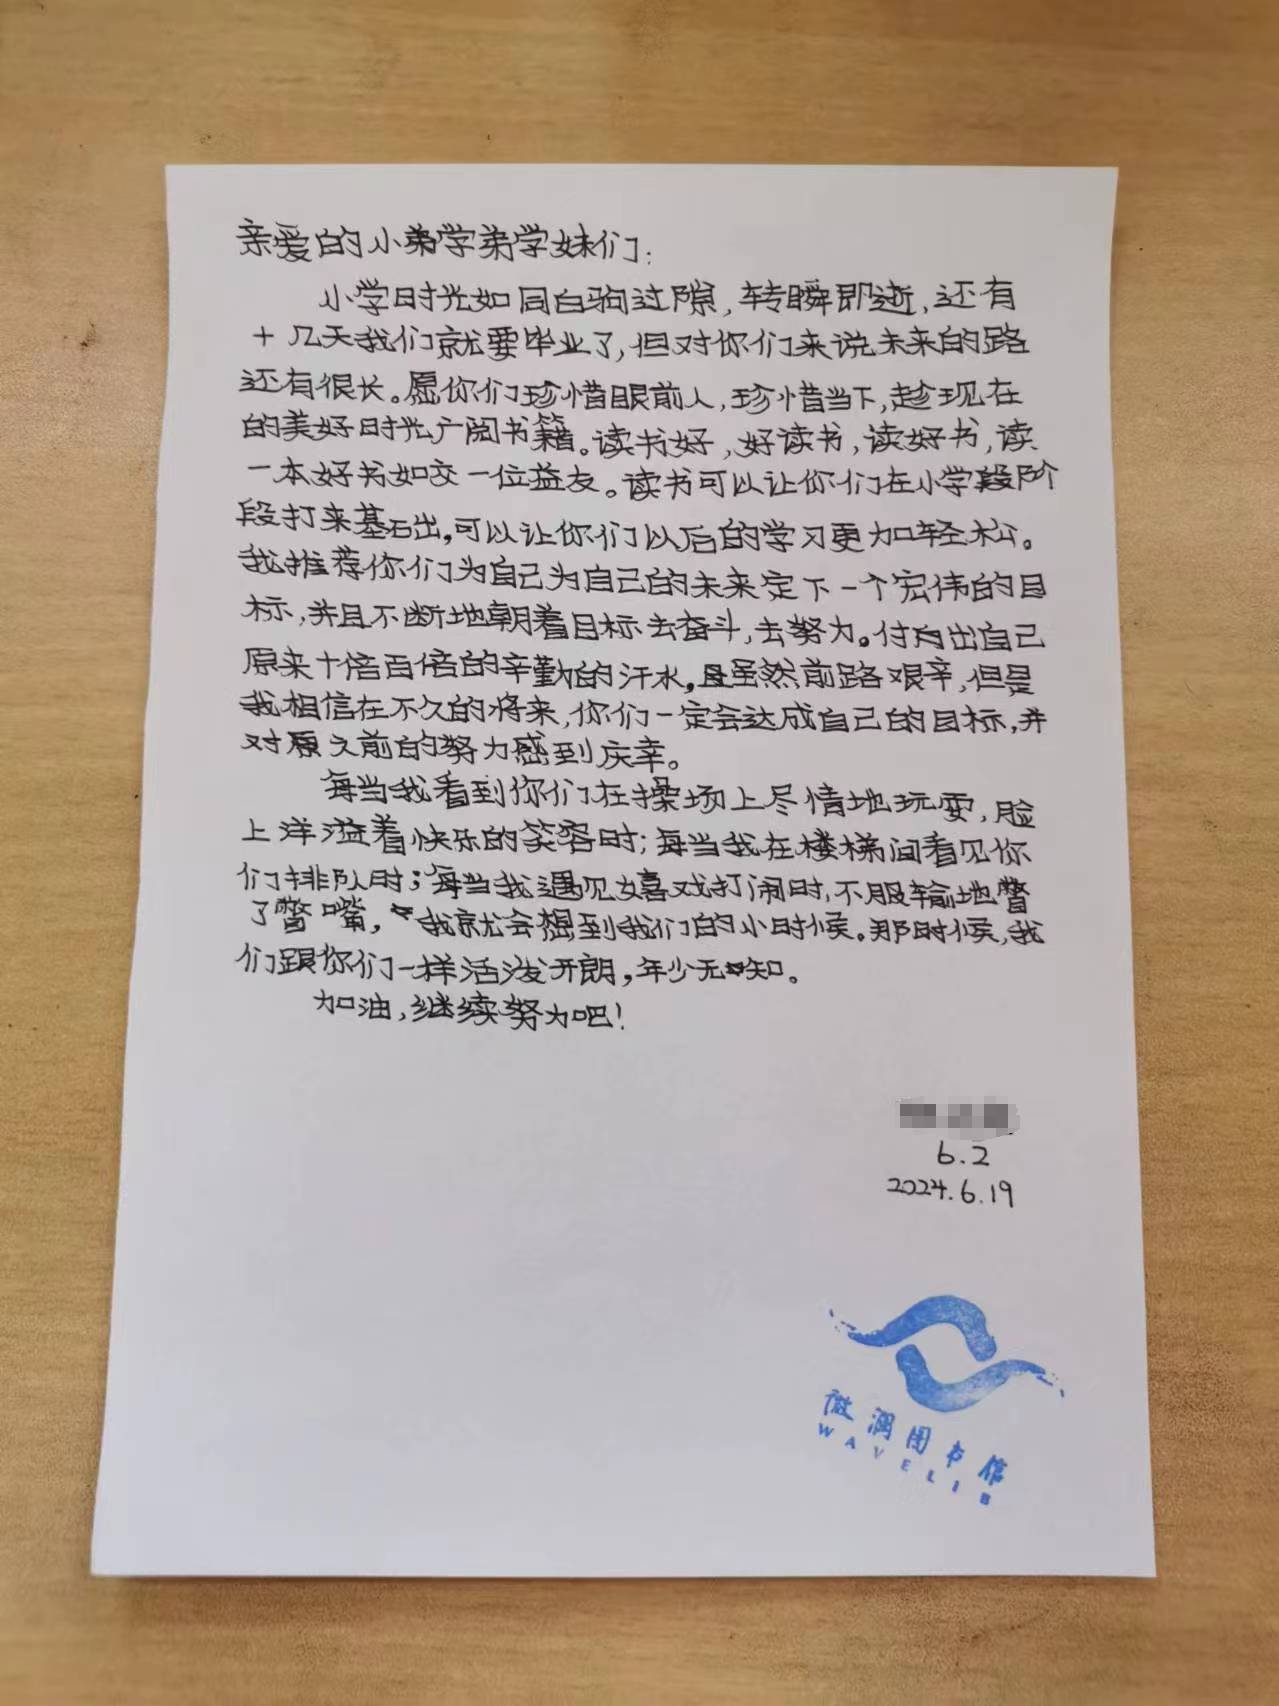 亲爱的小弟学弟学妹们:
小学时光如同白驹过隙,转瞬即逝,还有
十几天我们就要毕业了,但对你们来说未来的路
还有很长。愿你们珍惜眼前人,珍惜当下,趁现在
的美好时光广阅书籍。读书好,好读书,读好书,读
一本好书如交一位益友。读书可以让你们在小学段阶
段打来基石出,可以让你们以后的学习更加轻松。
我推荐你们为自己为自己的未来定下一个宏伟的目
标,并且不断地朝着目标去奋斗,去努力。付出自己
原来十倍百倍的辛勤的汗水,虽然前路艰辛,但是
我相信在不久的将来,你们一定会达成自己的目标,并
对之前的努力感到庆幸。
每当我看到你们在操场上尽情地玩耍,脸
上洋溢着快乐的笑容时;每当我在楼梯间看见你
们排队时;每当我遇见嬉戏打闹时,不服输地瞥
了瞥嘴,我就会想到我们的小时候。那时候,我
们跟你们一样活泼开朗,年少无知。
加油,继续努力吧!
6.2
2024.6.19
微澜图书馆
WAVELIB